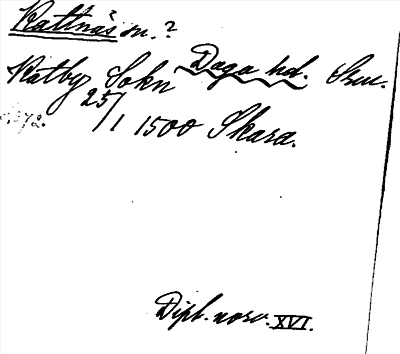 Kattnäs sn. ?
Kätby Sokn Daga hd. Smn.
25/1 1500 Skara.
Dipl. norv. XVI.